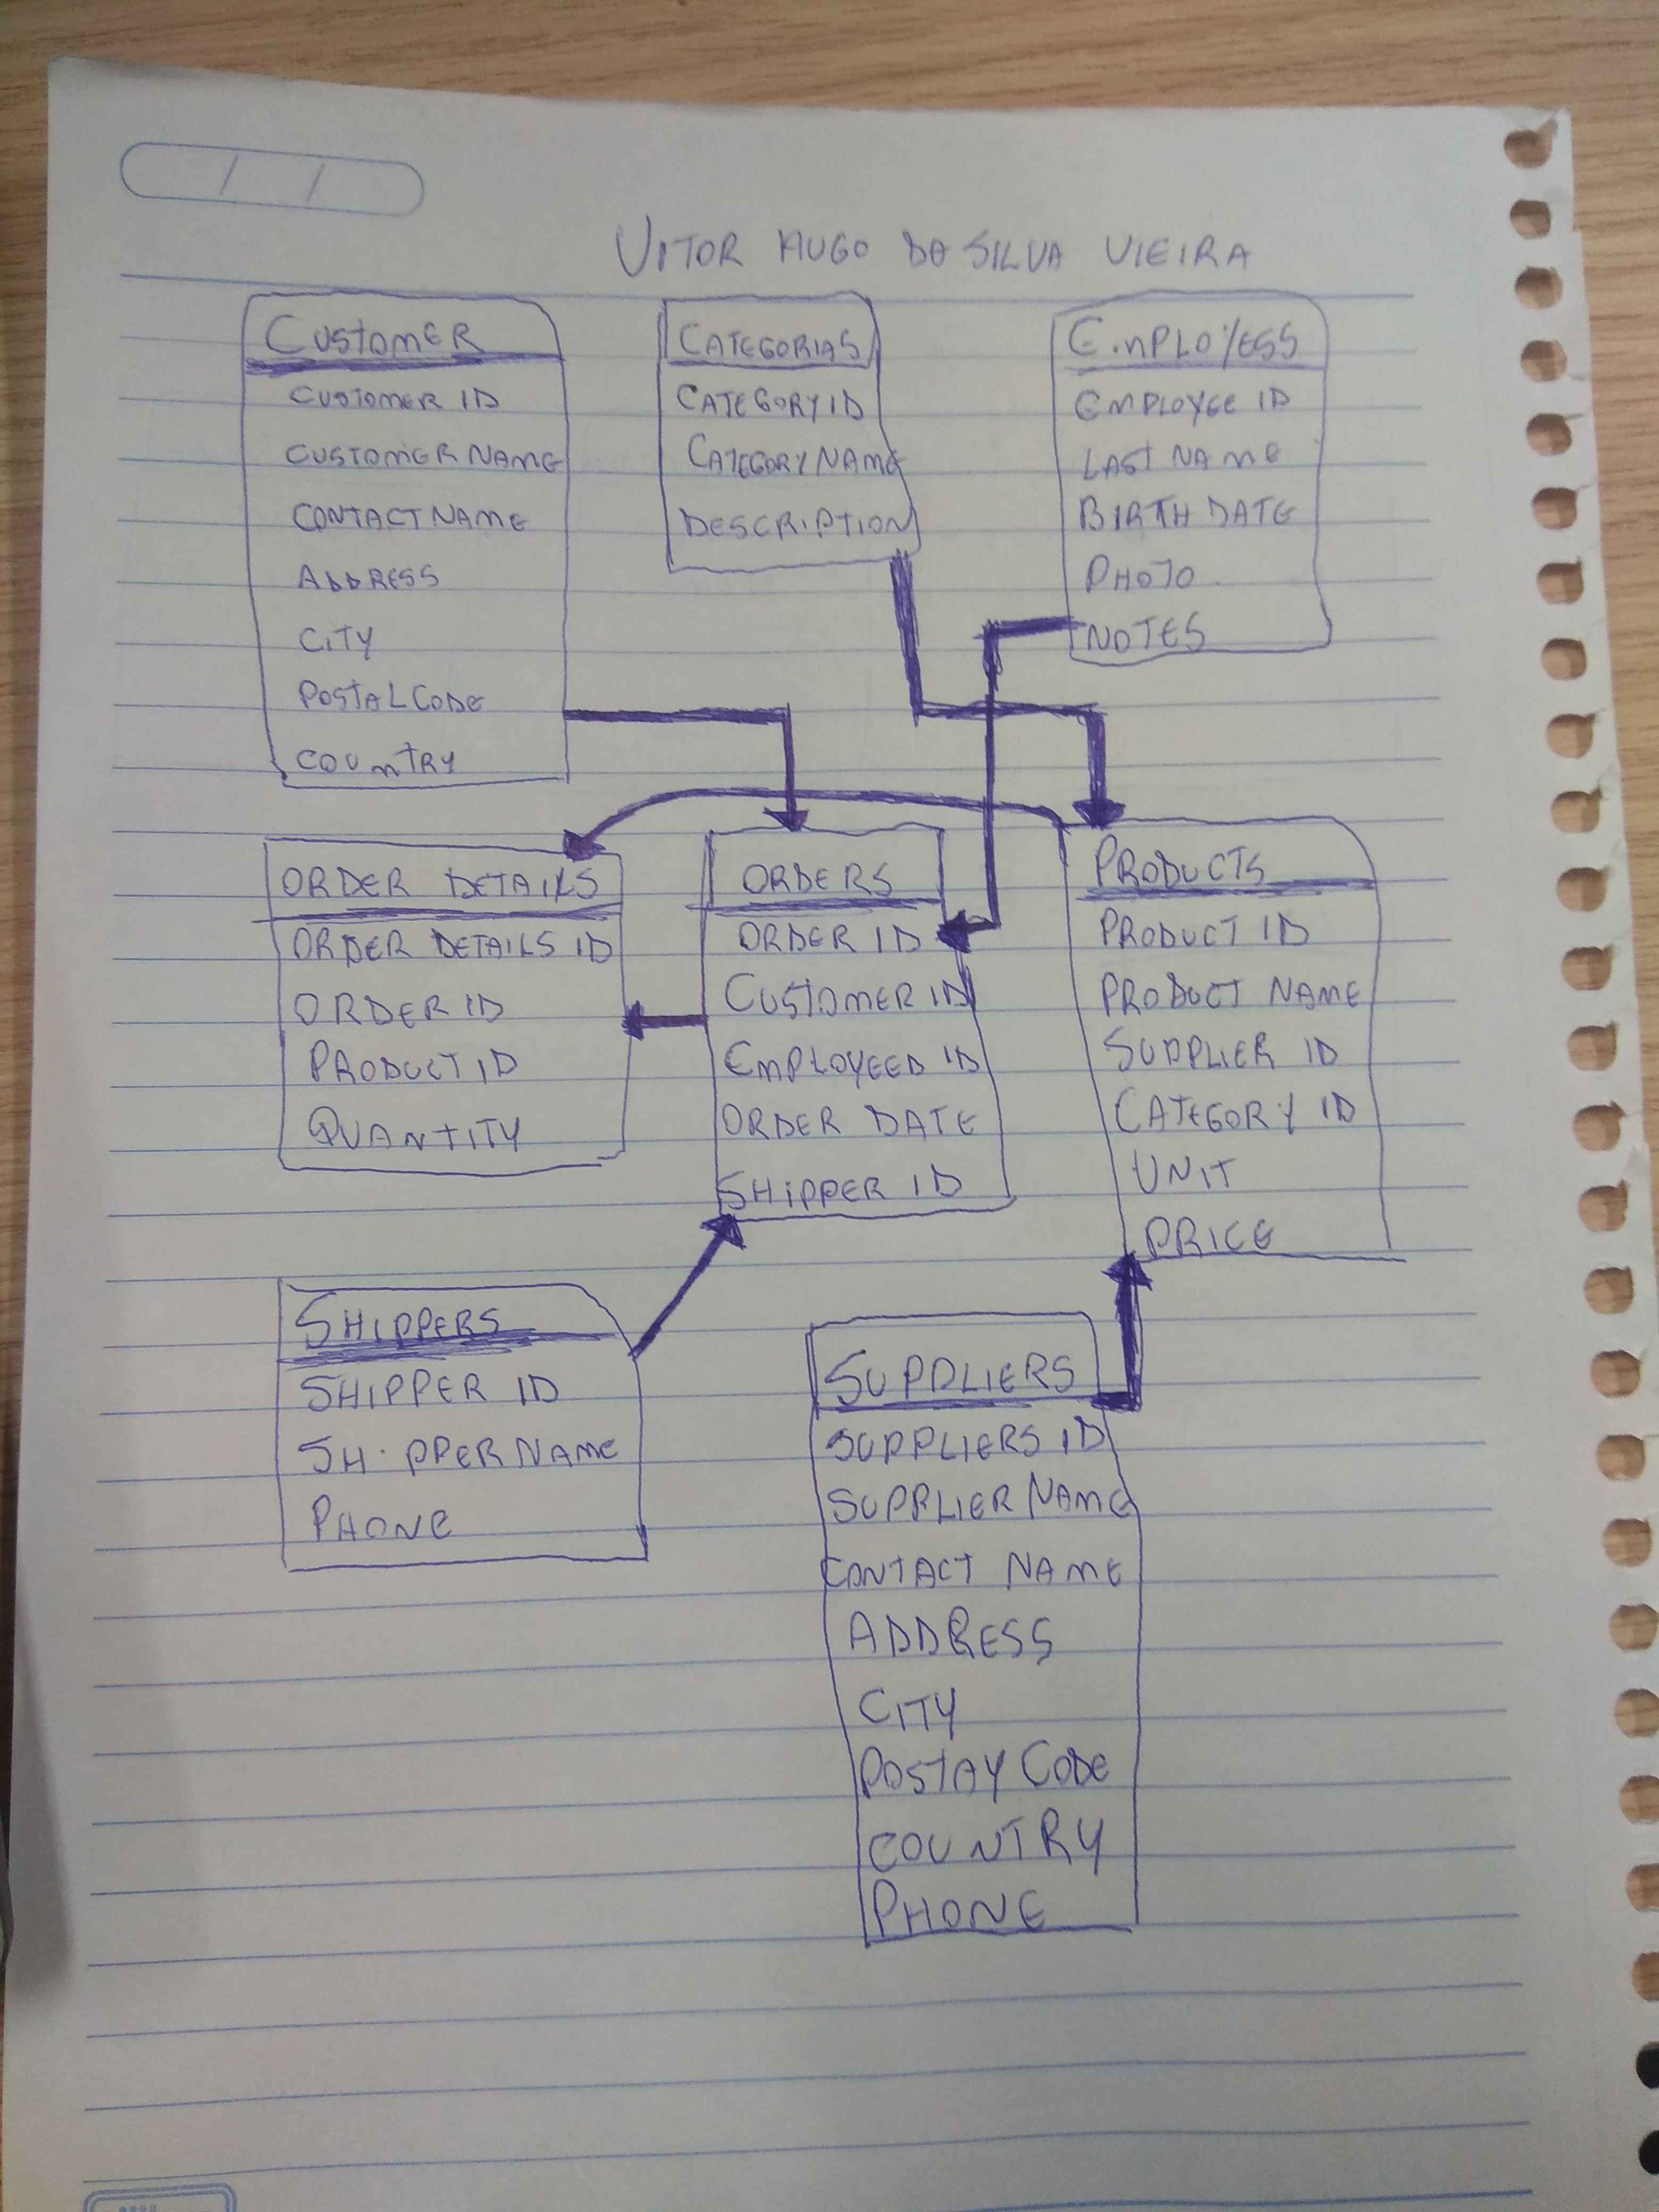 / /
VITOR HUGO DA SILVA VIEIRA
CUSTOMER
CUSTOMER ID
CUSTOMER NAME
CONTACT NAME
ADDRESS
CITY
POSTAL CODE
COUNTRY
CATEGORIAS
CATEGORY ID
CATEGORY NAME
DESCRIPTION
EMPLOYESS
EMPLOYEE ID
LAST NAME
BIRTH DATE
PHOTO
NOTES
ORDER DETAILS
ORDER DETAILS ID
ORDER ID
PRODUCT ID
QUANTITY
ORDERS
ORDER ID
CUSTOMER ID
EMPLOYEED ID
ORDER DATE
SHIPPER ID
PRODUCTS
PRODUCT ID
PRODUCT NAME
SUPPLIER ID
CATEGORY ID
UNIT
PRICE
SHIPPERS
SHIPPER ID
SHIPPER NAME
PHONE
SUPPLIERS
SUPPLIERS ID
SUPPLIER NAME
CONTACT NAME
ADDRESS
CITY
POSTAY CODE
COUNTRY
PHONE